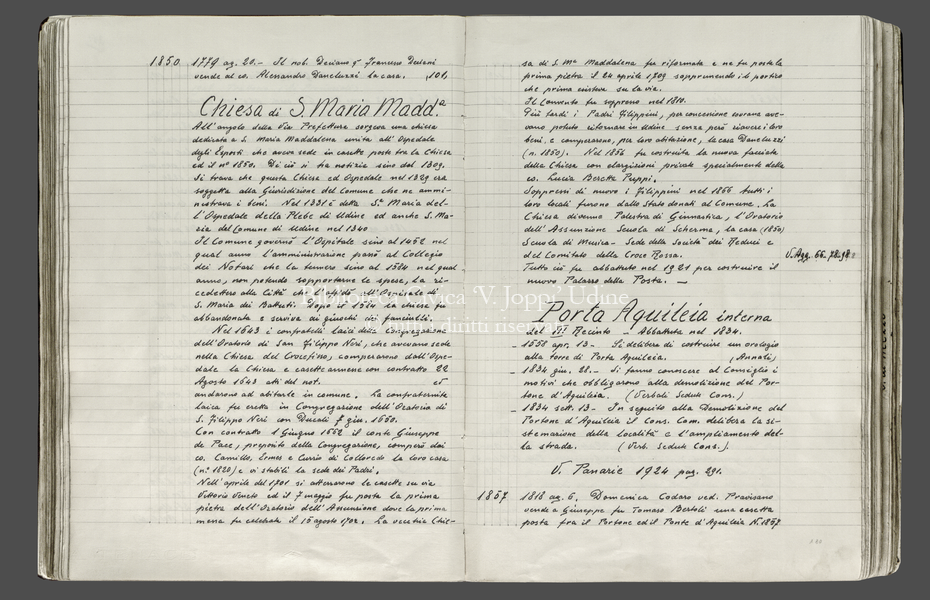 1850 1779 ag. 20.- Il nob. Deciano q Francesco Deciani
vende al co. Alessandro Daneluzzi la casa. 101,
Chiesa di S. Maria Madd.a
All'angolo della Via Prefettura sorgeva una chiesa
dedicata a S. Maria Maddalena unita all'Ospedale
degli Esposti che aveva sede in casette poste tra la Chiesa
ed il n° 1850. Di ciò si ha notizia sino dal 1309.
Si trova che questa Chiesa ed Ospedale nel 1329 era
soggetta alla Giurisdizione del Comune che ne ammi-
nistrava i beni. Nel 1331 è detta S.a Maria del-
l'Ospedale della Plebe di Udine ed anche S. Ma-
ria del Comune di Udine nel 1340
Il Comune governò l'Ospitale sino al 1452 nel
qual anno l'amministrazione passò al Collegio
dei Notari che la tennero sino al 1524 nel qual
anno, non potendo sopportarne le spese, la ri-
cedettero alla Città che l'affidò all'Ospedale di
S. Maria dei Battuti. Dopo il 1524 la chiesa fu
abbandonata e serviva di giuochi dei fanciulli.
Nel 1643 i confratelli laici della Congregazione
dell'Oratorio di San Filippo Neri, che avevano sede
nella Chiesa del Crocefisso, comperarono dall'Ospe-
dale la Chiesa e casette annesse con contratto 22
Agosto 1643 atti del not. ed
andarono ad abitarle in comune. La confraternita
laica fu eretta in Congregazione dell'Oratorio di
S. Filippo Neri con Ducali 7 giu. 1650.
Con contratto 1 Giugno 1662 il conte Giuseppe
de Pace, preposito della Congregazione, comperò dai
co. Camillo, Ermes e Curzio di Colloredo la loro casa
(n.° 1820) e vi stabilì la sede dei Padri.
Nell'aprile del 1701 si atterrarono le casette su via
Vittorio Veneto ed il 7 maggio fu posta la prima
pietra dell'Oratorio dell'Assunzione dove la prima
messa fu celebrata il 15 agosto 1702. La vecchia Chie-
sa di S. M.a Maddalena fu riformata e ne fu posta la
prima pietra il 24 aprile 1709 sopprimendo il portico
che prima esisteva su la via.
Il Convento fu soppresso nel 1810.
Più tardi i Padri Filippini, per concessione sovrana ave-
vano potuto ritornare in Udine senza però riavere i loro
beni, e comperarono, per loro abitazione, la casa Daneluzzi
(n. 1850). Nel 1856 fu costruita la nuova facciata
della Chiesa con elargizioni private specialmente della
co. Lucia Beretta Puppi.
Soppressi di nuovo i Filippini nel 1866 tutti i
loro locali furono dallo Stato donati al Comune. La
Chiesa divenne Palestra di Ginnastica, l'Oratorio
dell'Assunzione Scuola di Scherma, la casa (1850)
Scuola di Musica - Sede della Società dei Reduci e
del Comitato della Croce Rossa.
V. Agg. 66.78.98.
Tutto ciò fu abbattuto nel 1921 per costruire il
nuovo Palazzo della Posta. -
Porta Aquileia interna
del III Recinto - Abbattuta nel 1834.
- 1558 apr. 13 - Si delibera di costruire un orologio
alla torre di Porta Aquileia. (Annali)
- 1834 giu. 28.- Si fanno conoscere al Consiglio i
motivi che obbligarono alla demolizione del Por-
tone d'Aquileia. (Verbali Sedute Cons.)
- 1834 sett. 13 - In seguito alla Demolizione del
Portone d'Aquileia il Cons. Com. delibera la si-
stemazione della località e l'ampliamento del-
la strada. (Verb. Sedute Cons.).
V. Panarie 1924 pag. 291.
1857 1818 ag. 6. Domenica Codaro ved. Pravisano
vende a Giuseppe fu Tomaso Bertoli una casetta
posta fra il Portone ed il Ponte d'Aquileia N. 1857
Biblioteca Civica 'V. Joppi', Udine
Tutti i diritti riservati